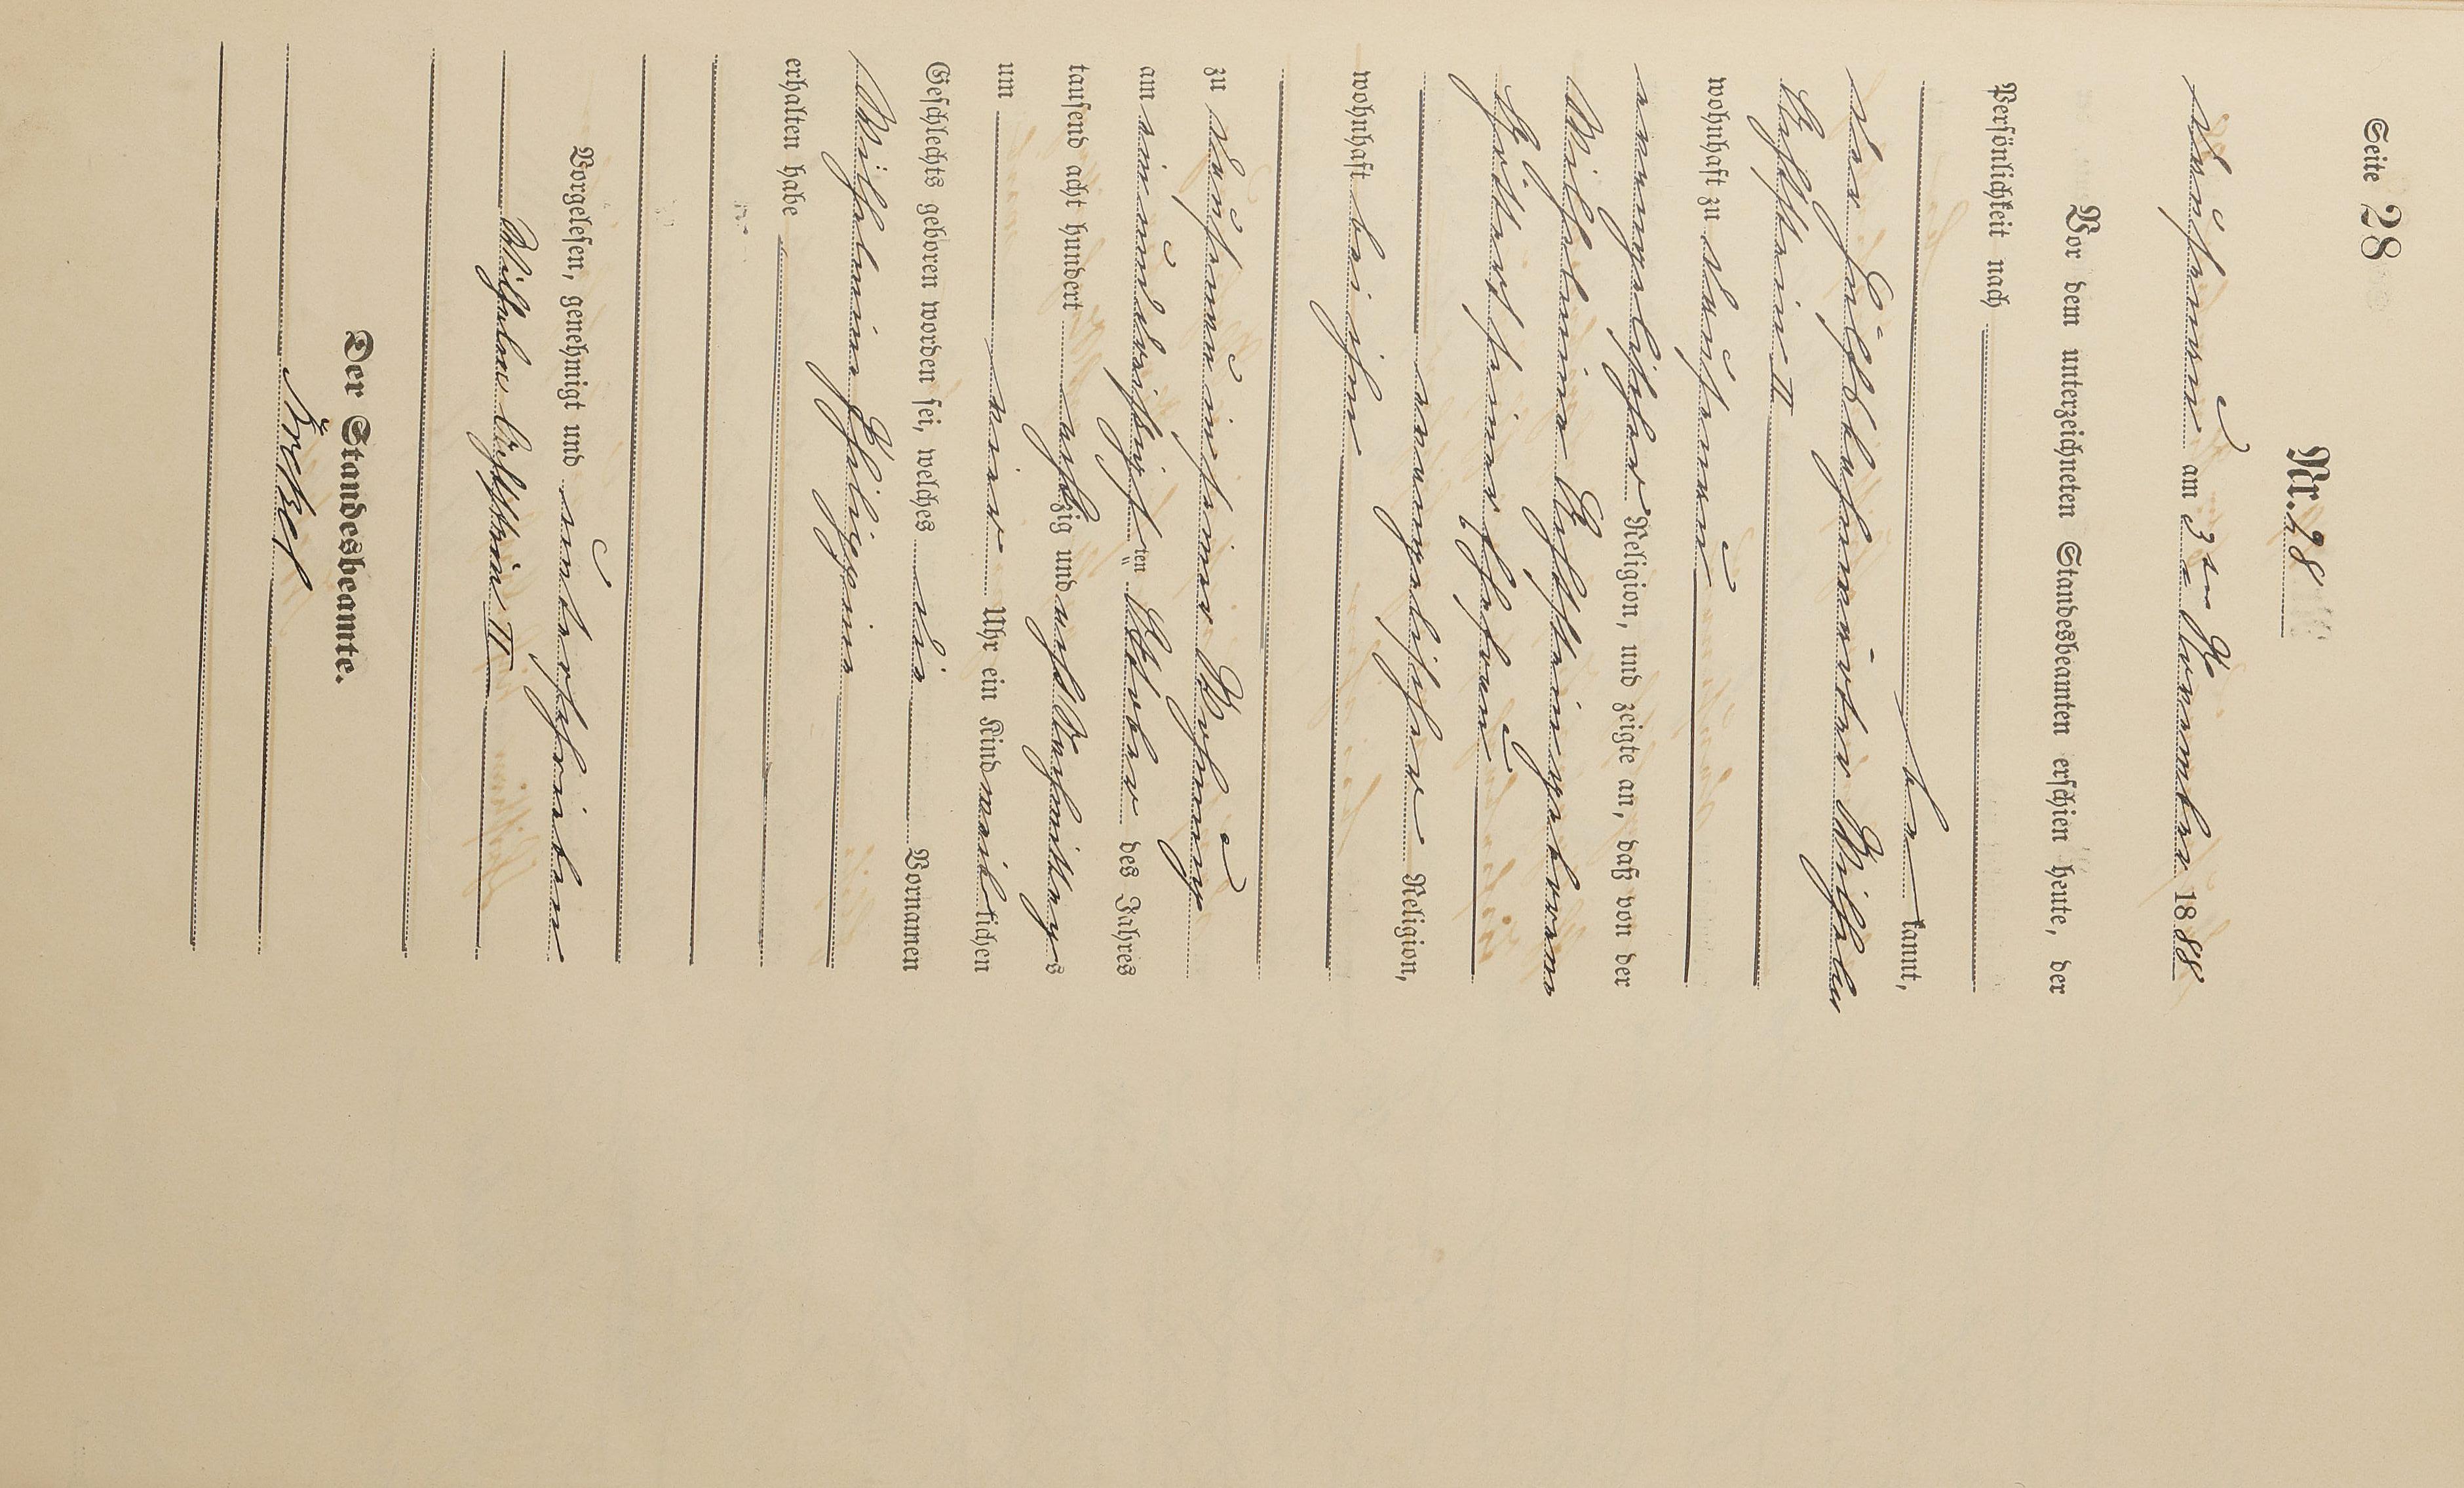 Seite 28
Nr. 28
am 3ten November 1888
Vor dem unterzeichneten Standesbeamten erschien heute, der
Persönlichkeit nach
be kannt,
der Wilhelm
II
wohnhaft zu
evangelischer Religion, und zeigte an, daß von der
Wilhelmine geborene
seiner Ehefrau
evangelischer Religion,
wohnhaft bei ihm
zu in seiner Wohnung
am einunddreißigsten Oktober des Jahres
tausend acht hundert achtzig und acht Nachmittags
um vier Uhr ein Kind weiblichen
Geschlechts geboren worden sei, welches die Vornamen
Wilhelmine Philippine
erhalten habe
Vorgelesen, genehmigt und unterschrieben
Wilhelm II
Der Standesbeamte.